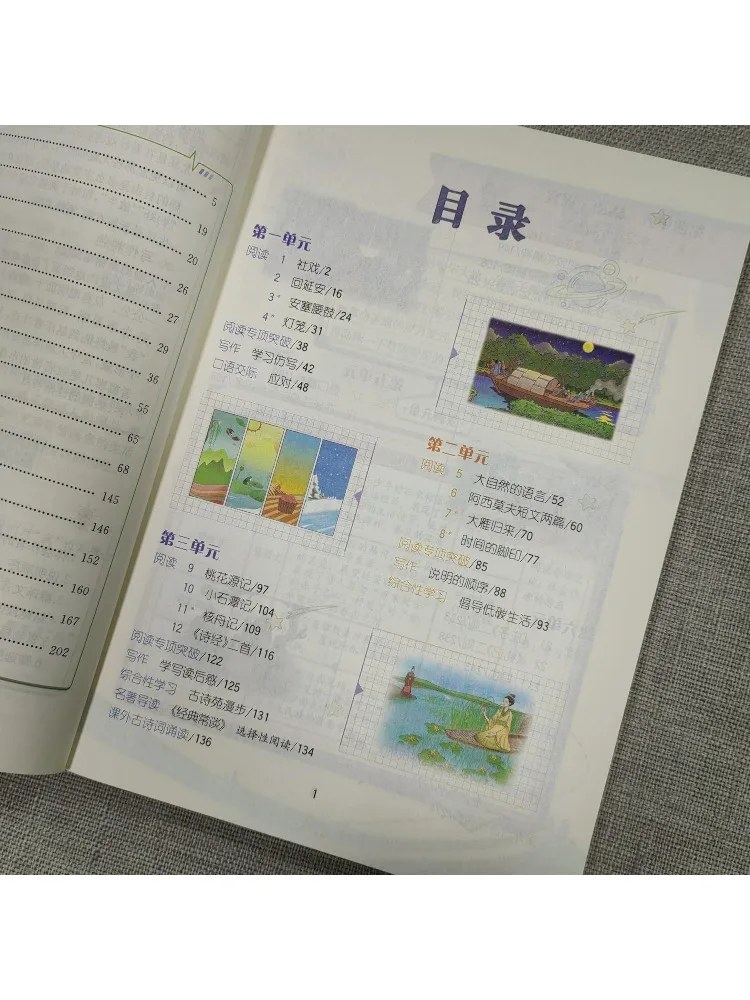 5
19
20
26
27
29
36
55
65
68
145
146
152
160
167
202
目录
第一单元
阅读 1 社戏/2
2 回延安/16
3* 安塞腰鼓/24
4* 灯笼/31
阅读专项突破/38
写作 学习仿写/42
口语交际 应对/48
第二单元
阅读 5 大自然的语言/52
6 阿西莫夫短文两篇/60
7* 大雁归来/70
8* 时间的脚印/77
阅读专项突破/85
写作 说明的顺序/88
综合性学习 倡导低碳生活/93
第三单元
阅读 9 桃花源记/97
10 小石潭记/104
11* 核舟记/109
12 《诗经》二首/116
阅读专项突破/122
写作 学写读后感/125
综合性学习 古诗苑漫步/131
名著导读 《经典常谈》 选择性阅读/134
课外古诗词诵读/136
1